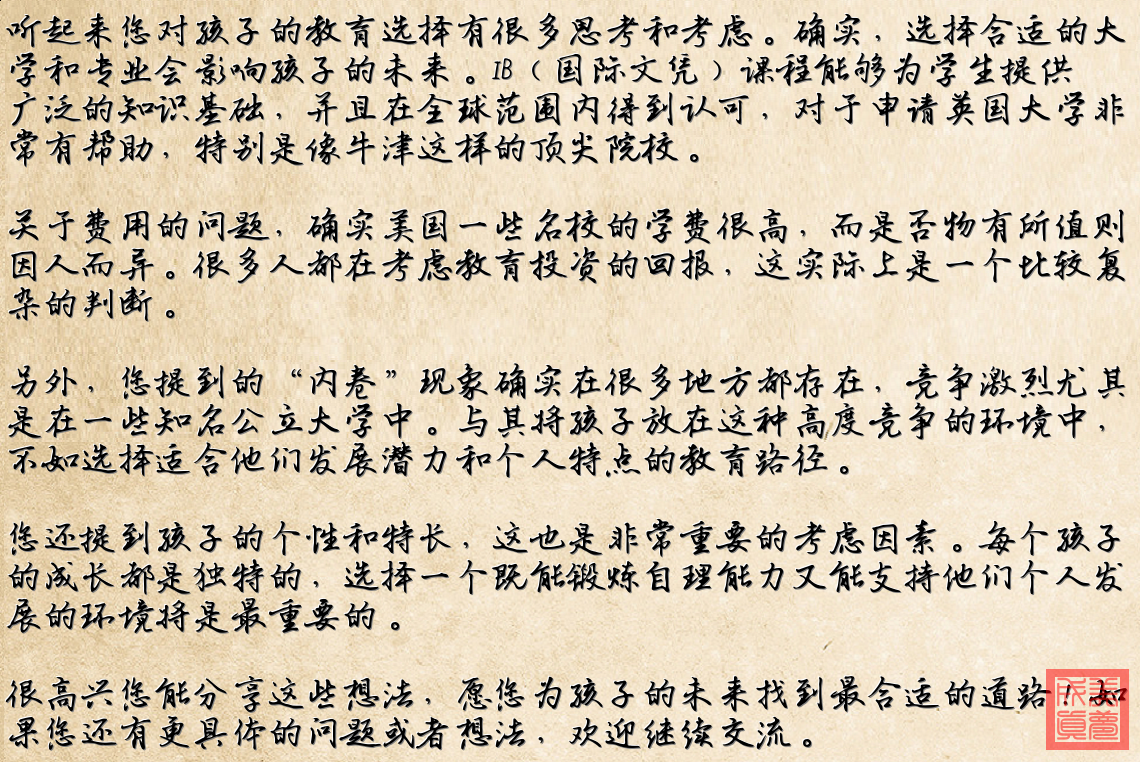 听起来您对孩子的教育选择有很多思考和考虑。确实，选择合适的大
学和专业会影响孩子的未来。IB（国际文凭）课程能够为学生提供
广泛的知识基础，并且在全球范围内得到认可，对于申请英国大学非
常有帮助，特别是像牛津这样的顶尖院校。
关于费用的问题，确实美国一些名校的学费很高，而是否物有所值则
因人而异。很多人都在考虑教育投资的回报，这实际上是一个比较复
杂的判断。
另外，您提到的“内卷”现象确实在很多地方都存在，竞争激烈尤其
是在一些知名公立大学中。与其将孩子放在这种高度竞争的环境中，
不如选择适合他们发展潜力和个人特点的教育路径。
您还提到孩子的个性和特长，这也是非常重要的考虑因素。每个孩子
的成长都是独特的，选择一个既能锻炼自理能力又能支持他们个人发
展的环境将是最重要的。
很高兴您能分享这些想法，愿您为孩子的未来找到最合适的道路！如
果您还有更具体的问题或者想法，欢迎继续交流。
美梦成真